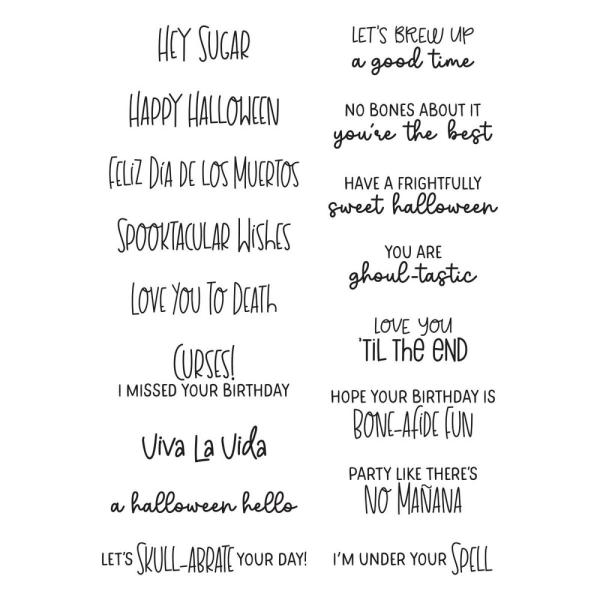 Hey Sugar
Happy Halloween
Feliz Día de los Muertos
Spooktacular Wishes
Love You To Death
Curses!
I MISSED YOUR BIRTHDAY
Viva La Vida
a halloween hello
LET'S SKULL-ABRATE YOUR DAY!
LET'S BREW UP
a good time
NO BONES ABOUT IT
you're the best
HAVE A FRIGHTFULLY
sweet halloween
YOU ARE
ghoul-tastic
LOVE YOU
'TIL THE END
HOPE YOUR BIRTHDAY IS
BONE-AFIDE FUN
PARTY LIKE THERE'S
NO MAÑANA
I'M UNDER YOUR SPELL